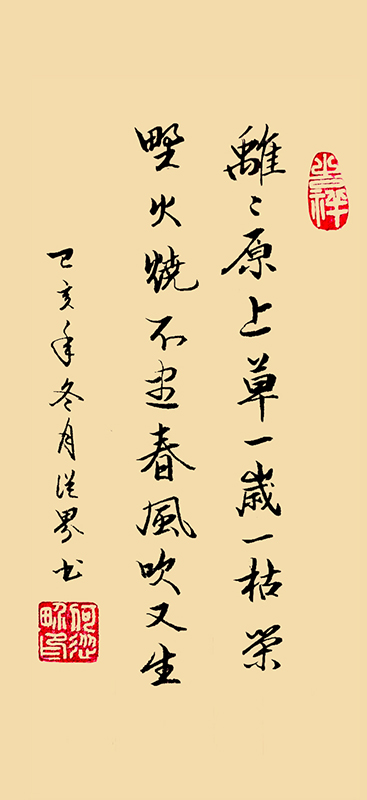 吉祥
離〻原上草一歲一枯榮
野火燒不盡春風吹又生
己亥年冬月界书